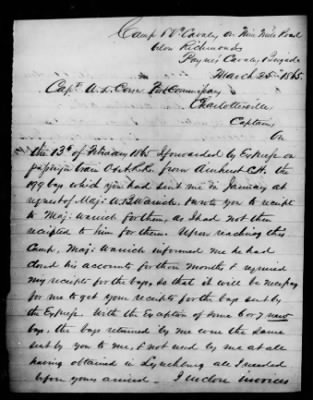 Camp 5th Va Cavalry on Nine Mile Road
below Richmond
Payne's Cavalry Brigade
March 25th 1865
Capt A. L. Post Commissary
Charlottesville
Captain,
On
the 13th of February 1865 I forwarded by Express on
passenger train O & A R.R. from Amherst C.H. the
179 bags which you had sent me in January at
request of Maj: Warwick. I wrote you to receipt
to Maj: Warwick for them, as I had not then
receipted to him for them. Upon reaching this
Camp, Maj: Warwick informed me he had
closed his accounts for those months & required
my receipt for the bags, so that it will be necessary
for me to get your receipts for the bags sent by
the Express. With the Exception of some 6 or 7 new
bags, the bags returned by me were the same
sent by you to me, & not used by me at all
having obtained in Lynchburg all I needed
before yours arrived. I inclose invoices